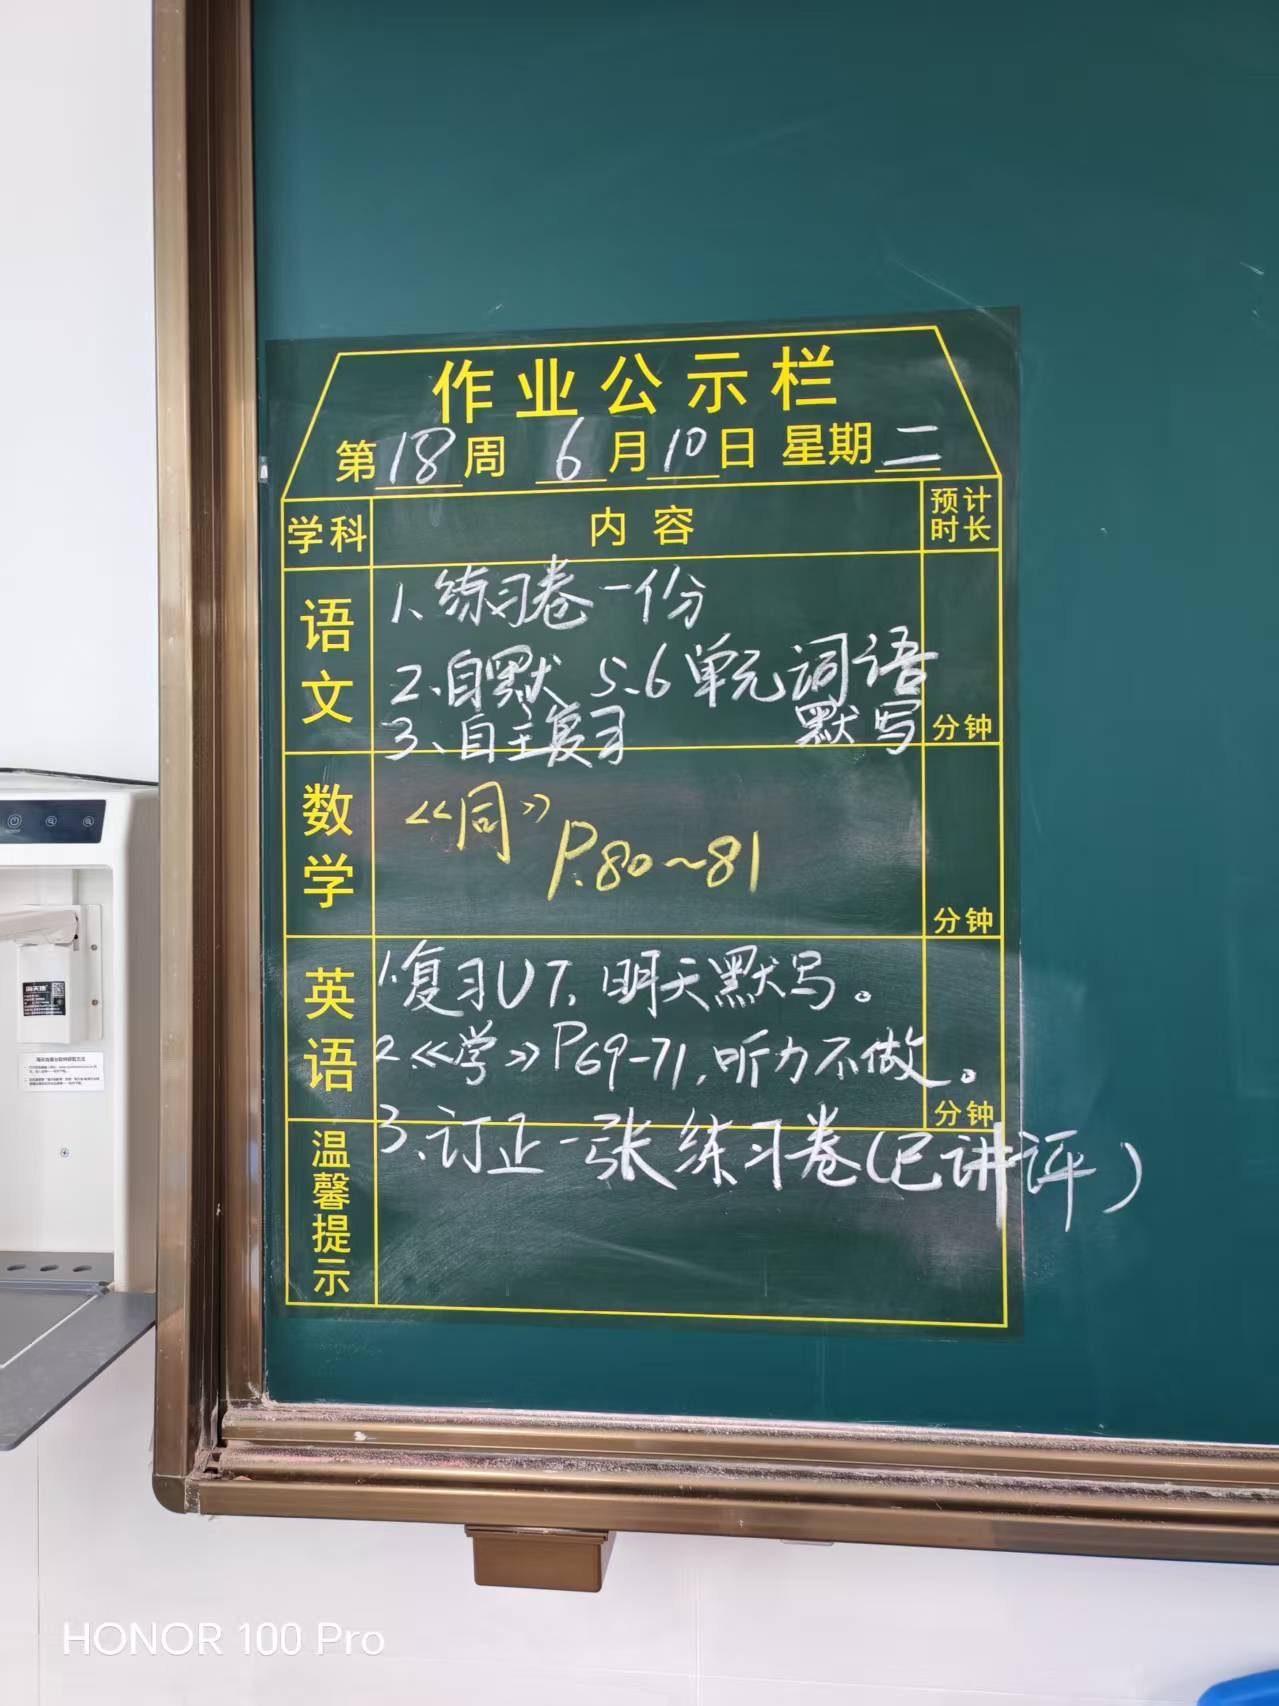 作业公示栏
第18周 6月10日 星期二
学科 内容 预计时长
语文
1、练习卷一份
2、自默 5、6单元词语
默写
3、自主复习
分钟
数学
《同》P.80~81
分钟
英语
1.复习U7,明天默写。
2.《学》P69-71,听力不做。
分钟
3、订正一张练习卷(已讲评)
温馨提示
HONOR 100 Pro